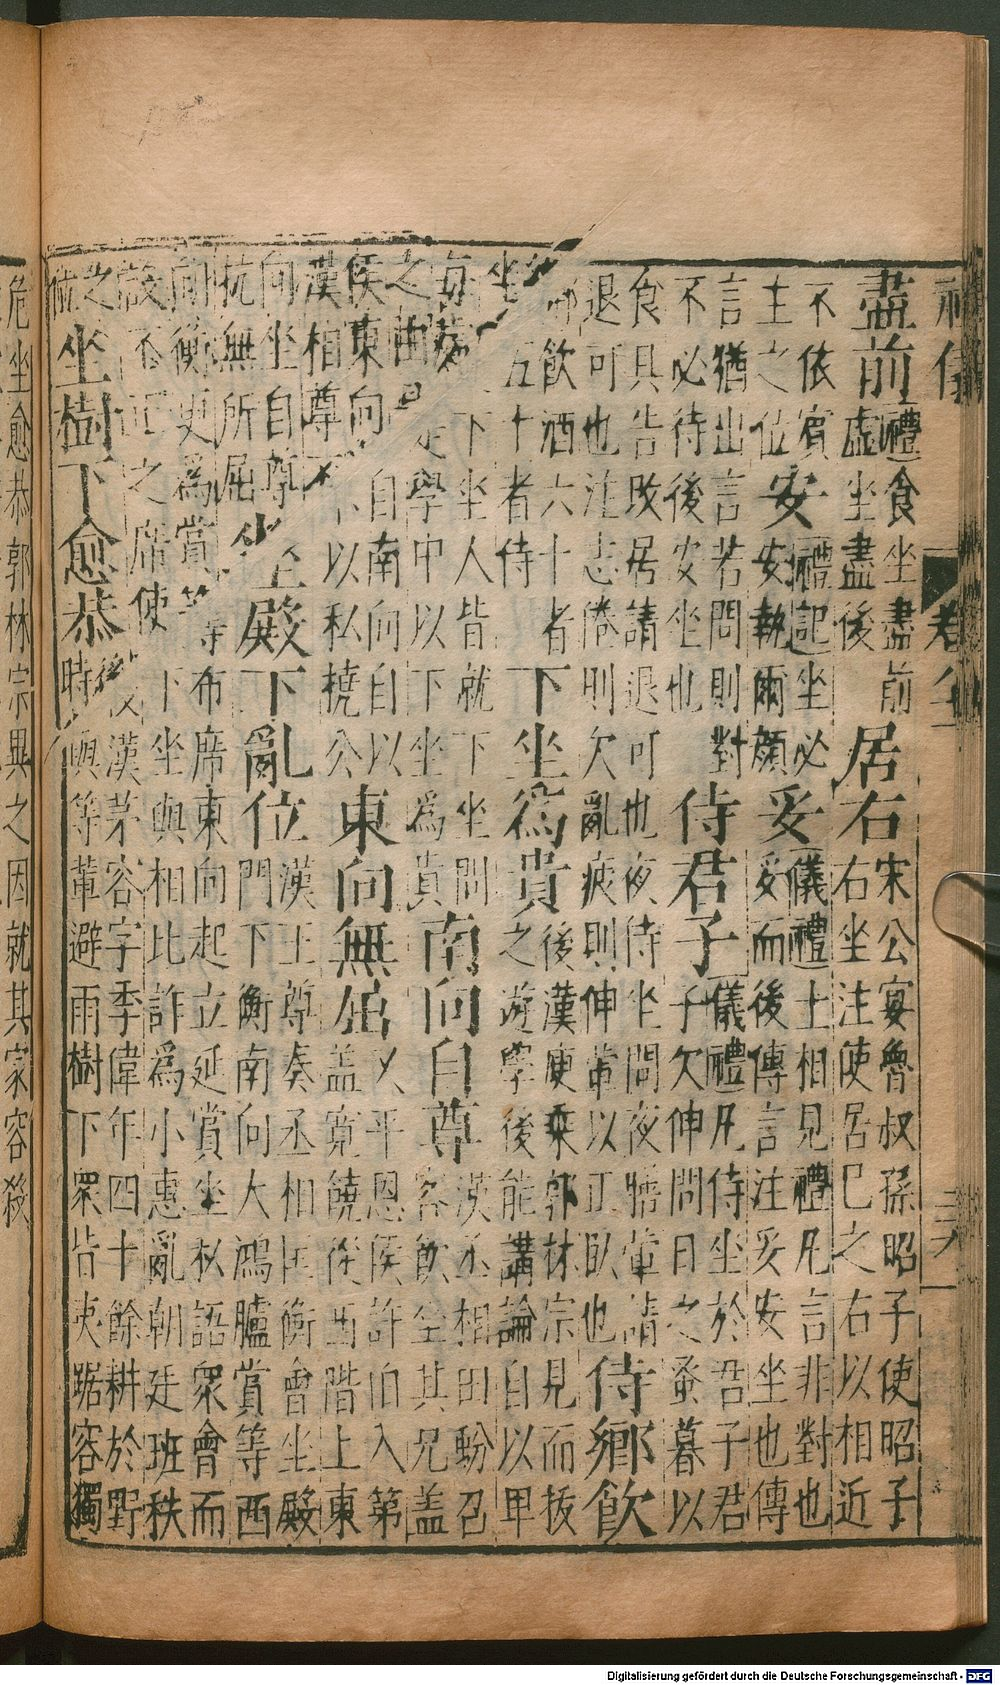 盡前
禮食坐盡前
虛坐盡後
居右
宋公宴魯叔孫昭子使昭子
右坐注使居己之右以相近
不依賓
主之位
安
禮記坐必
安執爾顏
妥
儀禮士相見禮凡言非對也
妥而後傳言注妥安坐也傳
言猶出言若問則對
不必待後安坐也
侍君子
儀禮凡侍坐於君子君
子欠伸問日之蚤暮以
食具告改居請退可也夜侍坐問夜膳葷請
退可也注志倦則欠亂疲則伸葷以止臥也
侍鄉飲
飲酒六十者
五十者侍
下坐為貴
後漢庾乘郭林宗見而拔
之遊學後能講論自以卑
下坐人皆就下坐問
學中以下坐為貴
南向自尊
漢丞相田蚡召
客飲坐其兄蓋
侯東向自南向自以
漢相尊不以私撓公
東向無屈
平恩侯許伯入第
蓋寬饒從西階上東
向坐自尊
抗無所屈
坐殿下亂位
漢王尊奏丞相匡衡會坐殿
門下衡南向大鴻臚賞等西
向衡更為賞等布席東向起立延賞坐私語眾會而
設不正之席使下坐與相比詐為小惠亂朝廷班秩
之位
坐樹下愈恭
後漢茅容字季偉年四十餘耕於野
時與等輩避雨樹下眾皆夷踞容獨
危坐愈恭郭林宗異之因就其家容殺
Digitalisierung gefördert durch die Deutsche Forschungsgemeinschaft - DFG